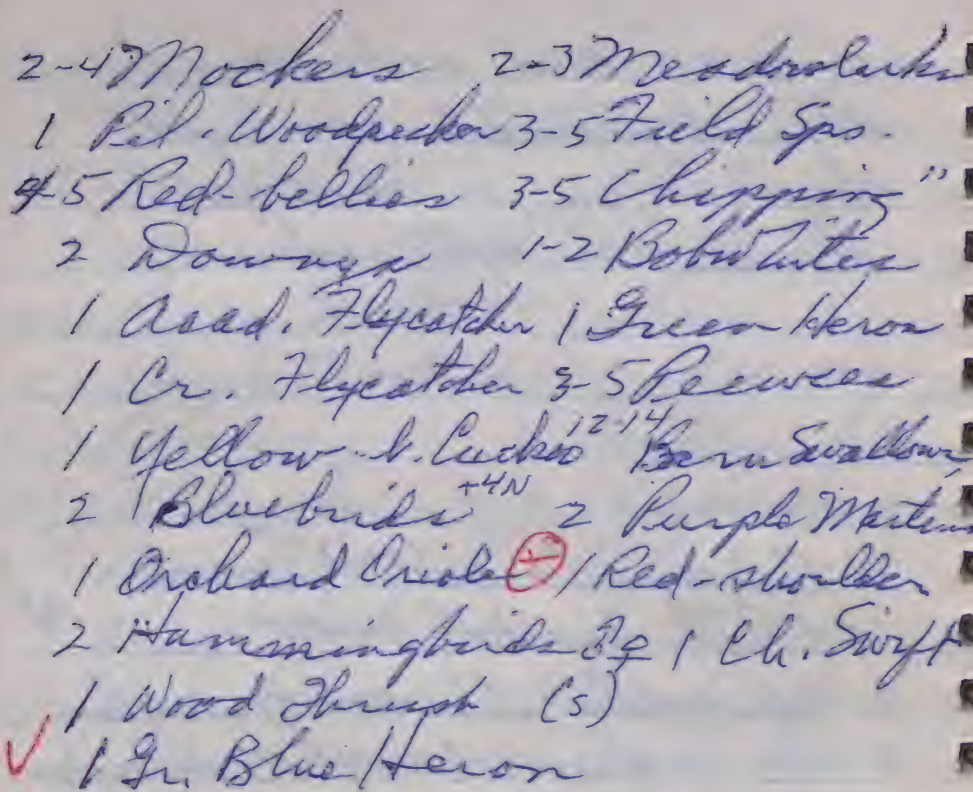 2-4 Mockers 2-3 Meadowlarks
1 Pil. Woodpecker 3-5 Field Sps.
4-5 Red-bellies 3-5 Chipping "
2 Downys 1-2 Bobwhites
1 Acad. Flycatcher 1 Green Heron
1 Cr. Flycatcher 3-5 Peewees
1 Yellow-b. Cuckoo 12-14 Barn Swallows
2 Bluebirds +4N 2 Purple Martins
1 Orchard Oriole 1 Red-shoulder
2 Hummingbirds 1 Ch. Swift
1 Wood Thrush (s)
✓ 1 Gr. Blue Heron